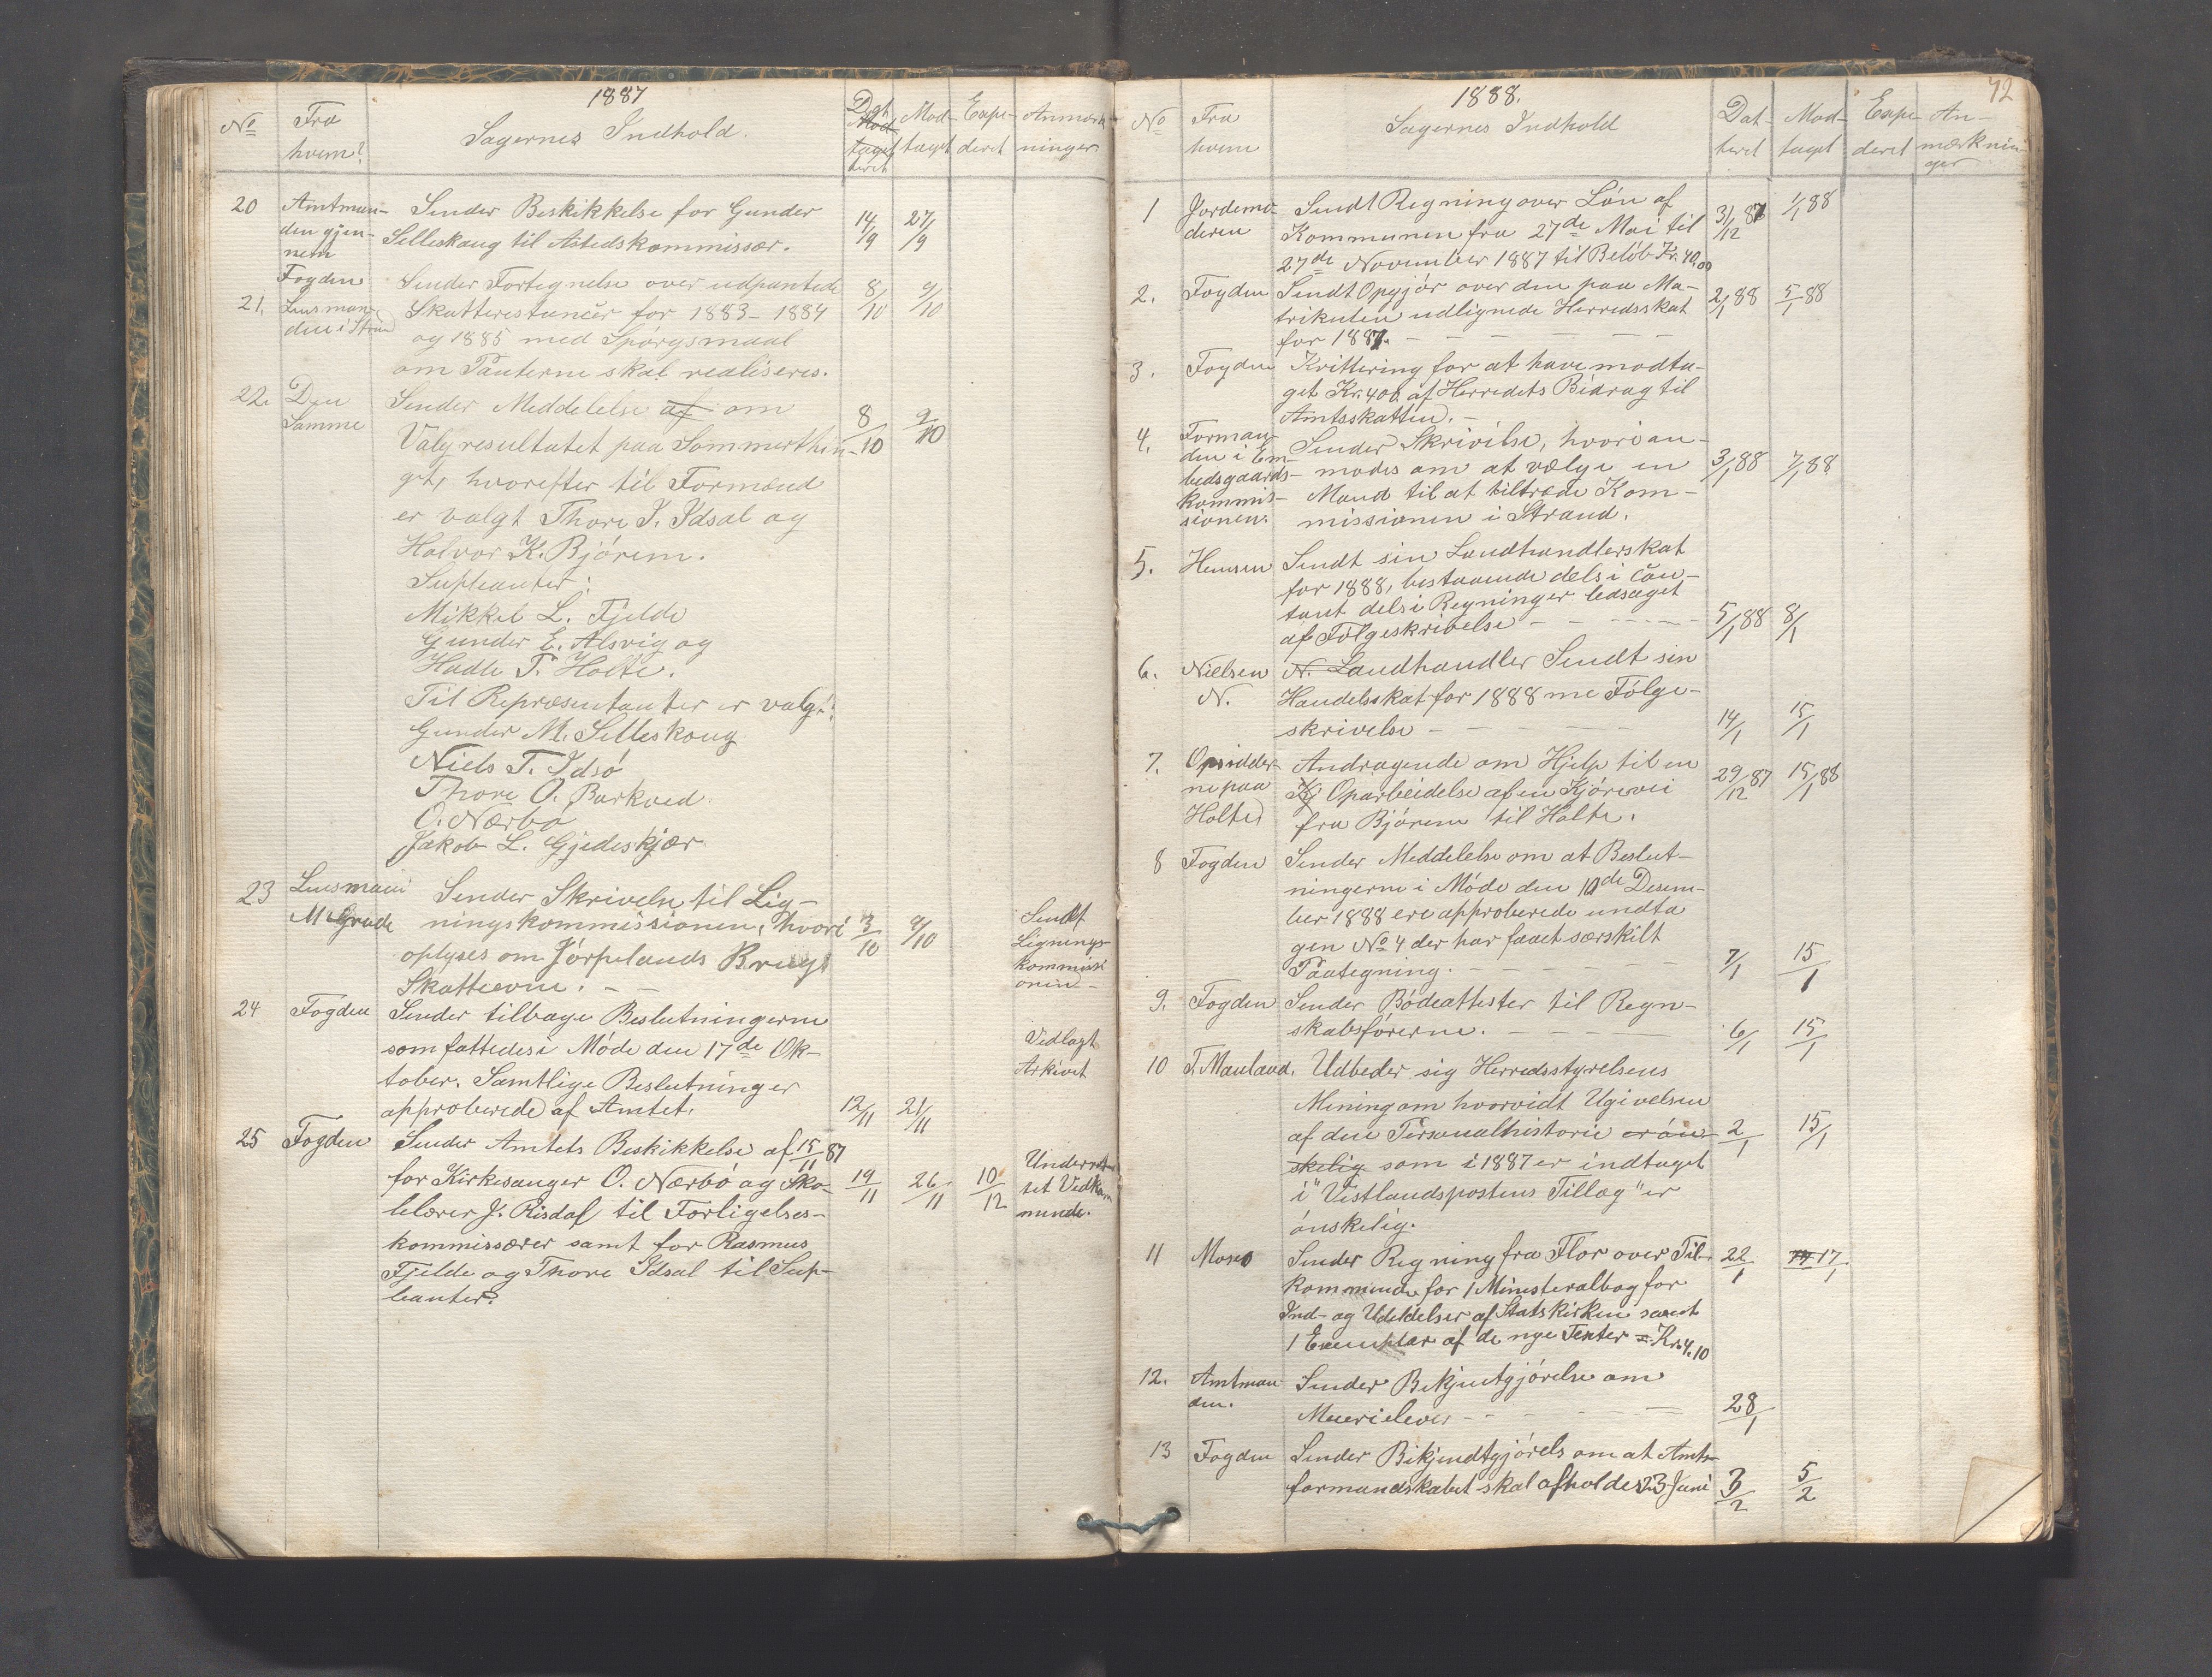 1887
No
Fra
hvem?
Sagernes Indhold.
Dat
teret
Mod-
taget
Expe-
deret
Anmærk
ninger
20
Amtman-
den gjen-
nem
Fogden
Sender Beskikkelse for Gunder
Selleskoug til Astedskommissær.
14/9
27/9
21.
Lensman-
den i Strand
Sender Fortegnelse over udpantede
Skatterestancer for 1883-1884
og 1885 med Spörgsmaal
om Panterne skal realiseres.
8/10
9/10
22.
Den
Samme
Sender Meddelelse af om
Valgresultatet paa Sommerthin-
get, hvorefter til Formænd
er valgt Thore T. Idsal og
Halvor K. Bjórem.
Supleanter:
Mikkel L. Fjelde
Gunder E. Alsvig og
Hadle T. Holte.
Til Repræsentanter er valgt:
Gunder M. Selleskoug
Niels T. Idsó
Thore O. Barkved.
O. Nærbó
Jakob L. Gjedeskjær.
8/10
9/10
23
Lensmand
M Grude
Sender Skrivelse til Lig-
ningskommissionen, hvori
oplyses om Jórpelands Brugs
Skatteevne. - -
3/10
9/10
Sendt
Lignings-
kommissi
onen -
24
Fogden
Sender tilbage Beslutningerne
som fattedes i Móde den 17de Ok-
tober. Samtlige Beslutninger
approberede af Amtet.
12/11
21/11
Vedlagt
Arkivet
25
Fogden
Sender Amtets Beskikkelse af 15/11 87
for Kirkesanger O. Nærbó og Sko-
lelærer J. Risdal til Forligelses-
kommissærer samt for Rasmus
Fjelde og Thore Idsal til Sup-
leanter.
19/11
26/11
10/12
Underret-
tet Vedkom
mende.
1888.
42
No
Fra
hvem
Sagernes Indhold
Dat-
teret
Mod-
taget
Expe-
deret
An-
mærknin
ger
1
Jordemo-
deren
Sendt Regning over Lón af
Kommunen fra 27de Mai til
27de November 1887 til Belób Kr. 40,00
31/12 87
1/1 88
2.
Fogden
Sendt Opgjór over den paa Ma-
trikulen udlignede Herredsskat
for 1887. - - - - -
2/1 88
5/1 88
3.
Fogden
Kvittering for at have modta-
get Kr. 400 af Herredets Bidrag til
Amtsskatten. -
4.
Forman-
den i Em-
bedsgaards-
kommis-
sionen.
Sender Skrivelse, hvori an-
modes om at vælge en
Mand til at tiltræde Kom-
missionen i Strand.
3/1 88
7/1 88
5.
Hensen
Sendt sin Landhandlerskat
for 1888, bestaaende dels i con-
tant dels i Regninger ledsaget
af Fólgeskrivelse - - - - -
5/1 88
8/1
6.
Nielsen
N.
N. Landhandler Sendt sin
Handelsskat for 1888 me Fólge-
skrivelse - - - - -
14/1
15/1
7.
Opsidder-
ne paa
Holte
Andragende om Hjelp til en
Kj Oparbeidelse af en Kjórevei
fra Bjórem til Holte.
29/12 87
15/1 88
8
Fogden
Sender Meddelelse om at Beslut-
ningerne i Móde den 10de Desem-
ber 1888 ere approberede undta
gen No 4 der har faaet særskilt
Paategning. - - - - -
7/1
15/1
9.
Fogden
Sender Bódeattester til Regn-
skabsfórerne. - - - - -
6/1
15/1
10
T. Mauland.
Udbeder sig Herredsstyrelsens
Mening om hvorvidt Ugivelsen
af den Personalhistorie er ón-
skelig som i 1887 er indtaget
i "Vestlandspostens Tillæg" er
ónskelig.
2/1
15/1
11
Moso
Sender Regning fra Flor over Til-
kommende for 1 Ministeralbog for
Ind- og Udeldelser af Statskirken samt
1 Exemplar af de nye Texter = Kr. 4.10
22/1
17/1
12.
Amtman
den.
Sender Bekjentgjórelse om
Meierielever - - - - -
28/1
13
Fogden
Sender Bekjendtgjórels om at Amts-
formandskabet skal afholdes 23 Juni
3/2
5/2